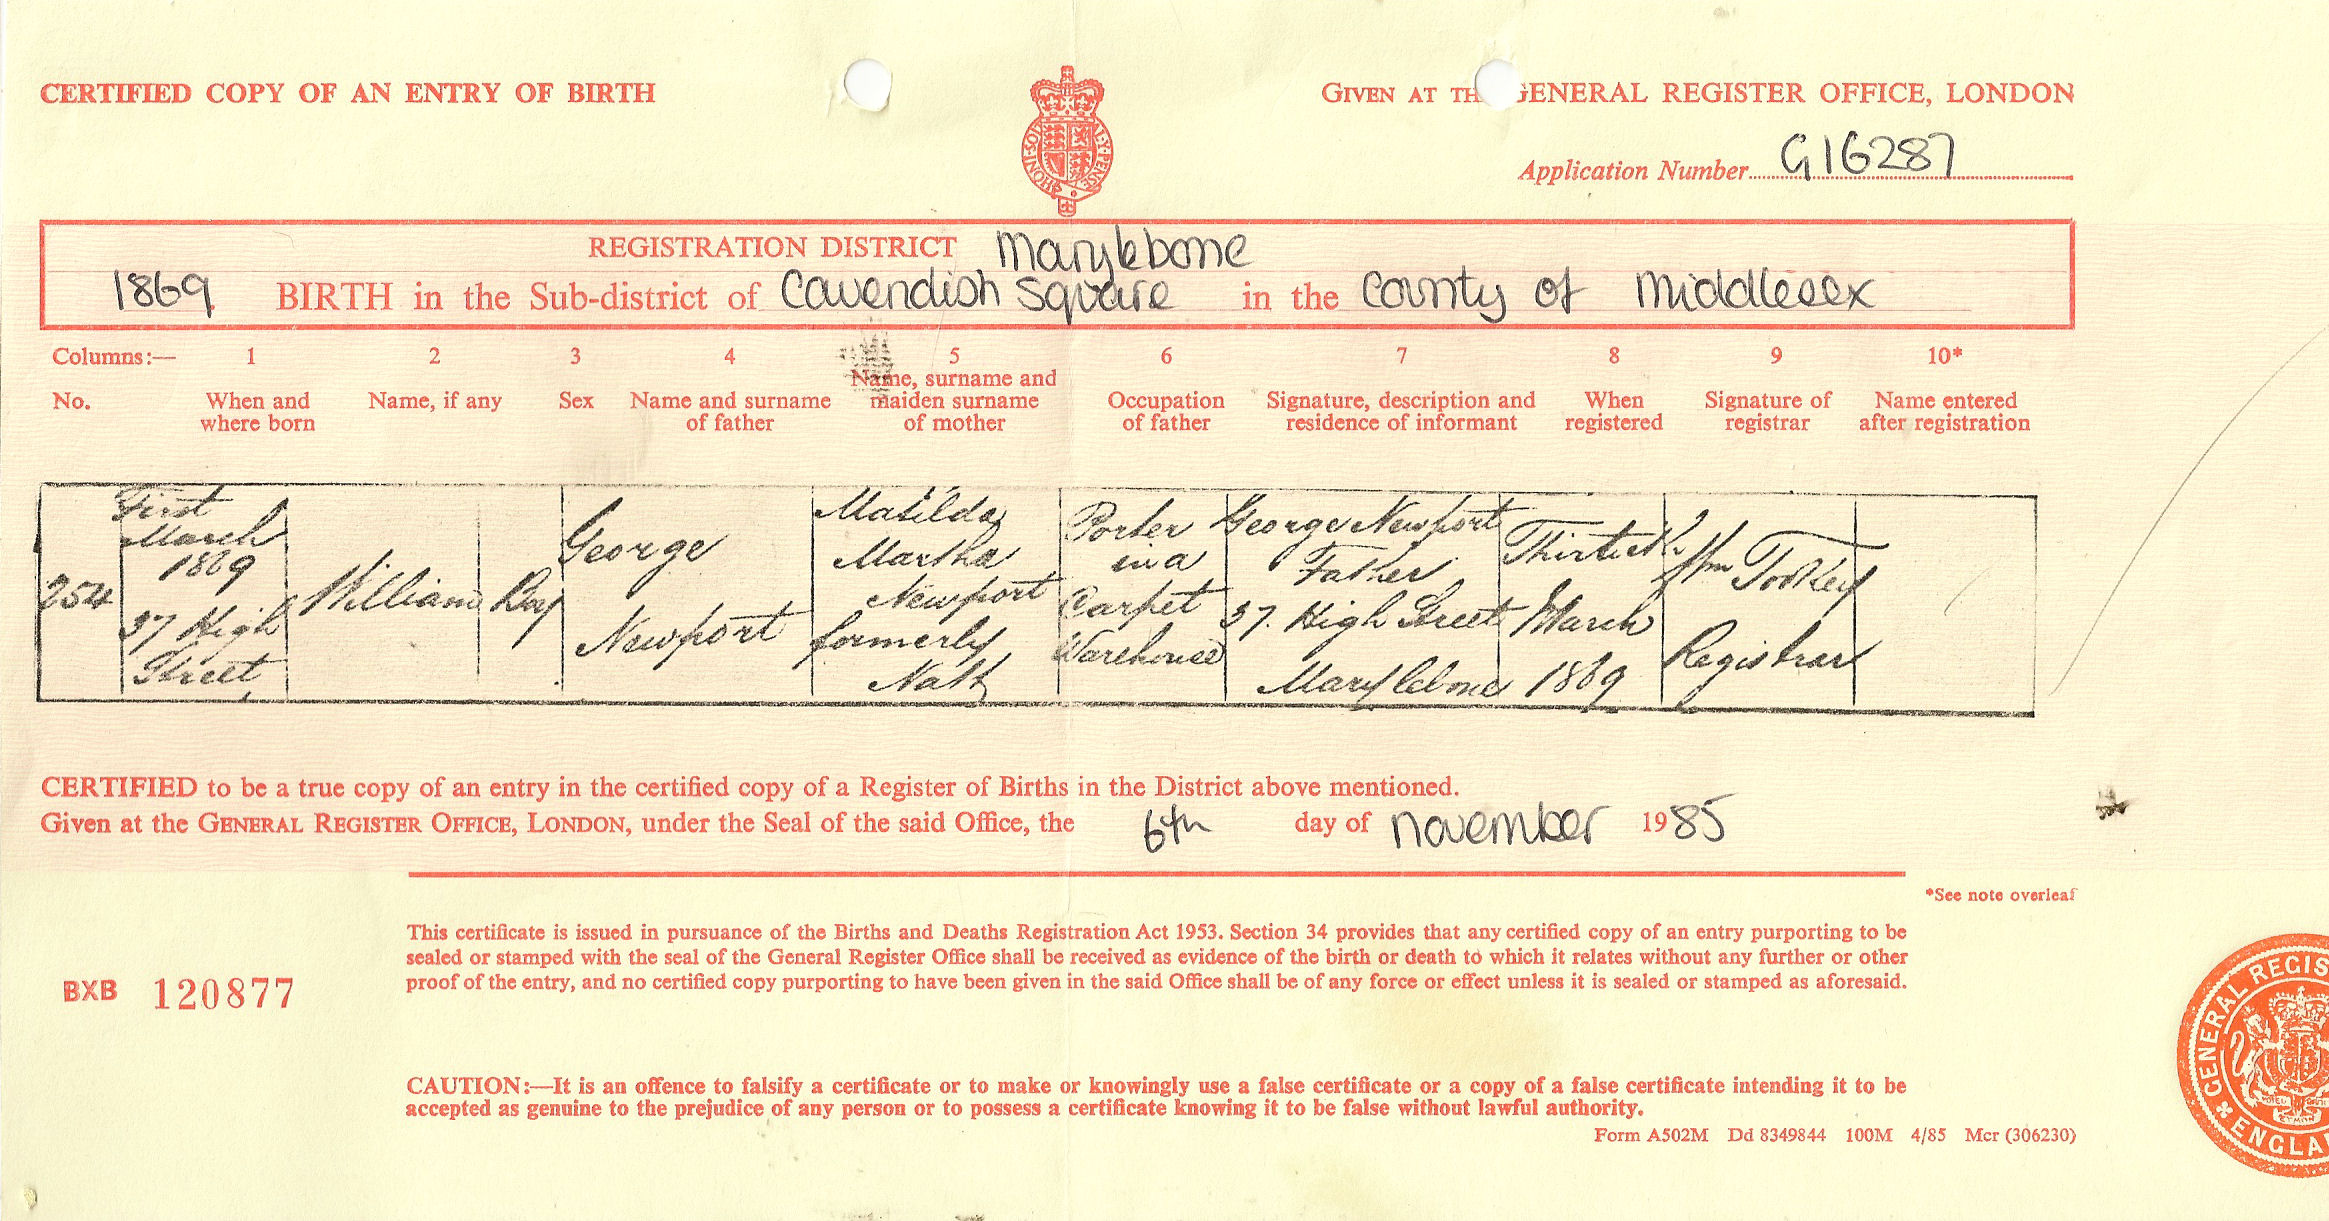 CERTIFIED COPY OF AN ENTRY OF BIRTH
GIVEN AT THE GENERAL REGISTER OFFICE, LONDON
HONI SOIT MAL Y PENSE
Application Number G16287
REGISTRATION DISTRICT Marylebone
1869 BIRTH in the Sub-district of Cavendish Square in the County of Middlesex
Columns:— 1 2 3 4 5 6 7 8 9 10*
No.
When and where born
Name, if any
Sex
Name and surname of father
Name, surname and maiden surname of mother
Occupation of father
Signature, description and residence of informant
When registered
Signature of registrar
Name entered after registration
254
First
March
1869
37 High
Street
William
Boy
George
Newport
Matilda
Martha
Newport
formerly
Porter
in a
Carpet
Warehouse
George Newport
Father
37. High Street
Marylebone
Thirtieth
March
1869
Wm Tookey
Registrar
CERTIFIED to be a true copy of an entry in the certified copy of a Register of Births in the District above mentioned.
Given at the GENERAL REGISTER OFFICE, LONDON, under the Seal of the said Office, the 6th day of november 1985
*See note overleaf
This certificate is issued in pursuance of the Births and Deaths Registration Act 1953. Section 34 provides that any certified copy of an entry purporting to be
sealed or stamped with the seal of the General Register Office shall be received as evidence of the birth or death to which it relates without any further or other
proof of the entry, and no certified copy purporting to have been given in the said Office shall be of any force or effect unless it is sealed or stamped as aforesaid.
BXB 120877
CAUTION:—It is an offence to falsify a certificate or to make or knowingly use a false certificate or a copy of a false certificate intending it to be
accepted as genuine to the prejudice of any person or to possess a certificate knowing it to be false without lawful authority.
Form A502M Dd 8349844 100M 4/85 Mcr (306230)
GENERAL REGIS
ENGLA